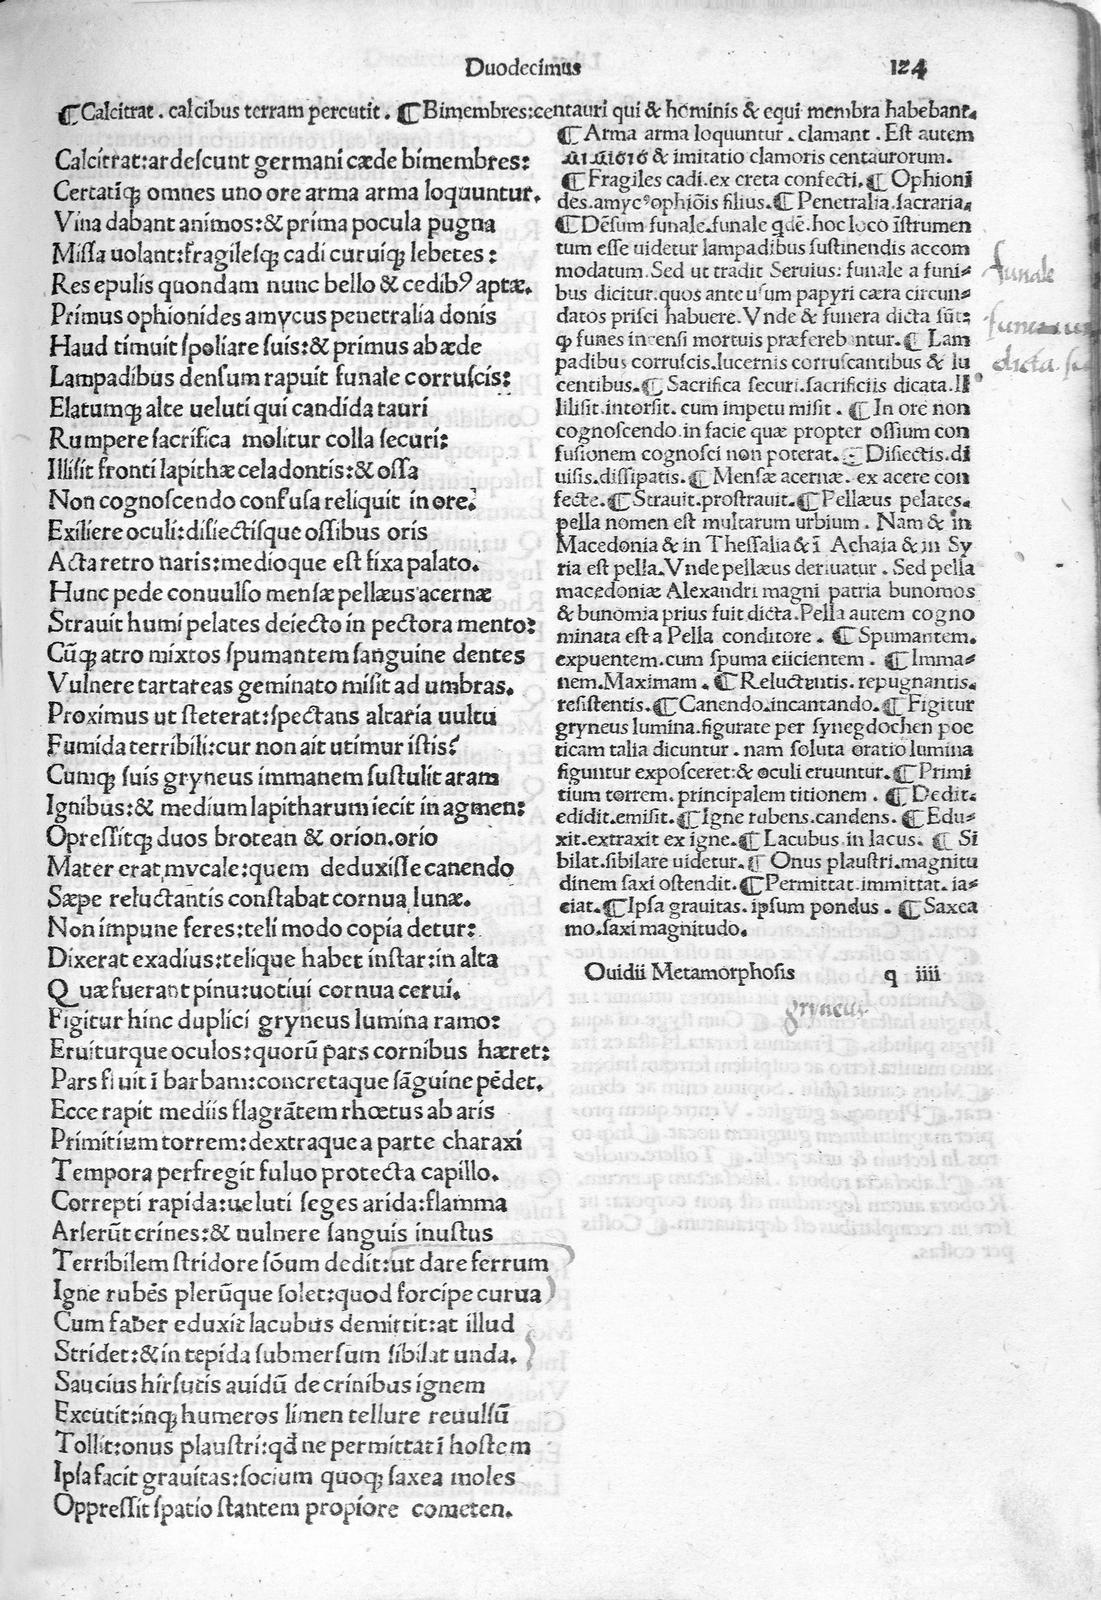 Duodecimus
124
¶Calcitrat . calcibus terram percutit . ¶Bimembres:centauri qui & hominis & equi membra habebant.
Calcitrat:ardescunt germani cæde bimembres:
Certatiq; omnes uno ore arma arma loquuntur.
Vina dabant animos:& prima pocula pugna
Missa uolant:fragilesq; cadi curuiq; lebetes:
Res epulis quondam nunc bello & cedibꝰ aptæ.
Primus ophionides amycus penetralia donis
Haud timuit spoliare suis:& primus ab æde
Lampadibus densum rapuit funale corruscis:
Elatumq; alte ueluti qui candida tauri
Rumpere sacrifica molitur colla securi:
Illisit fronti lapithæ celadontis:& ossa
Non cognoscendo confusa reliquit in ore.
Exiliere oculi:disiectisque ossibus oris
Acta retro naris:medioque est fixa palato.
Hunc pede conuulso mensæ pellæus acernæ
Strauit humi pelates deiecto in pectora mento:
Cūq; atro mixtos spumantem sanguine dentes
Vulnere tartareas geminato misit ad umbras.
Proximus ut steterat:spectans altaria uultu
Fumida terribili:cur non ait utimur istis?
Cumq; suis gryneus immanem sustulit aram
Ignibus:& medium lapitharum iecit in agmen:
Opressitq; duos brotean & orion.orio
Mater erat mycale:quem deduxisse canendo
Sæpe reluctantis constabat cornua lunæ.
Non impune feres:teli modo copia detur:
Dixerat exadius:telique habet instar:in alta
Quæ fuerant pinu:uotiui cornua cerui.
Figitur hinc duplici gryneus lumina ramo:
Eruiturque oculos:quorū pars cornibus hæret:
Pars fluit ī barbam:concretaque sāguine pēdet.
Ecce rapit mediis flagrātem rhœtus ab aris
Primitium torrem:dextraque a parte charaxi
Tempora perfregit fuluo protecta capillo.
Correpti rapida:ueluti seges arida:flamma
Arserūt crines:& uulnere sanguis inustus
Terribilem stridore sōum dedit:ut dare ferrum
Igne rubēs plerūque solet:quod forcipe curua
Cum faber eduxit lacubus demittit:at illud
Stridet:& in tepida submersum sibilat unda.
Saucius hirsutis auidū de crinibus ignem
Excutit:inq; humeros limen tellure reuulsū
Tollit:onus plaustri:qd̄ ne permittat ī hostem
Ipsa facit grauitas:socium quoq; saxea moles
Oppressit spatio stantem propiore cometen.
¶Arma arma loquuntur . clamant . Est autem
& imitatio clamoris centaurorum.
¶Fragiles cadi.ex creta confecti.¶Ophioni
des.amycꝰophiōis filius.¶Penetralia.sacraria.
¶Dēsum funale.funale qdē.hoc loco īstrumen
tum esse uidetur lampadibus sustinendis accom
modatum.Sed ut tradit Seruius:funale a funi-
bus dicitur.quos ante usum papyri cæra circun-
datos prisci habuere.Vnde & funera dicta sūt:
q; funes incensi mortuis præferebantur.¶Lam
padibus corruscis.lucernis corruscantibus & lu
centibus.¶Sacrifica securi.sacrificiis dicata.Il
lilisit.intorsit.cum impetu misit . ¶In ore non
cognoscendo.in facie quæ propter ossium con
fusionem cognosci non poterat.¶Disiectis.di
uisis.dissipatis.¶Mensæ acernæ. ex acere con
fecte.¶Strauit.prostrauit.¶Pellæus pelates.
pella nomen est multarum urbium . Nam & in
Macedonia & in Thessalia & ī Achaia & in Sy
ria est pella.Vnde pellæus deriuatur . Sed pella
macedoniæ Alexandri magni patria bunomos
& bunomia prius fuit dicta.Pella autem cogno
minata est a Pella conditore . ¶Spumantem.
expuentem.cum spuma eiicientem . ¶Imma-
nem.Maximam . ¶Reluctentis.repugnantis.
resistentis.¶Canendo.incantando.¶Figitur
gryneus lumina.figurate per synegdochen poe
ticam talia dicuntur . nam soluta oratio lumina
figuntur exposceret:& oculi eruuntur.¶Primi
tium torrem. principalem titionem . ¶Dedit.
edidit.emisit.¶Igne rubens.candens.¶Edu-
xit.extraxit ex igne.¶Lacubus.in lacus. ¶Si
bilat.sibilare uidetur.¶Onus plaustri.magnitu
dinem saxi ostendit.¶Permittat.immittat.ia-
ciat.¶Ipsa grauitas. ipsum pondus . ¶Saxea
mo.saxi magnitudo.
Ouidii Metamorphosis q iiii
funale
dicta
gryneus